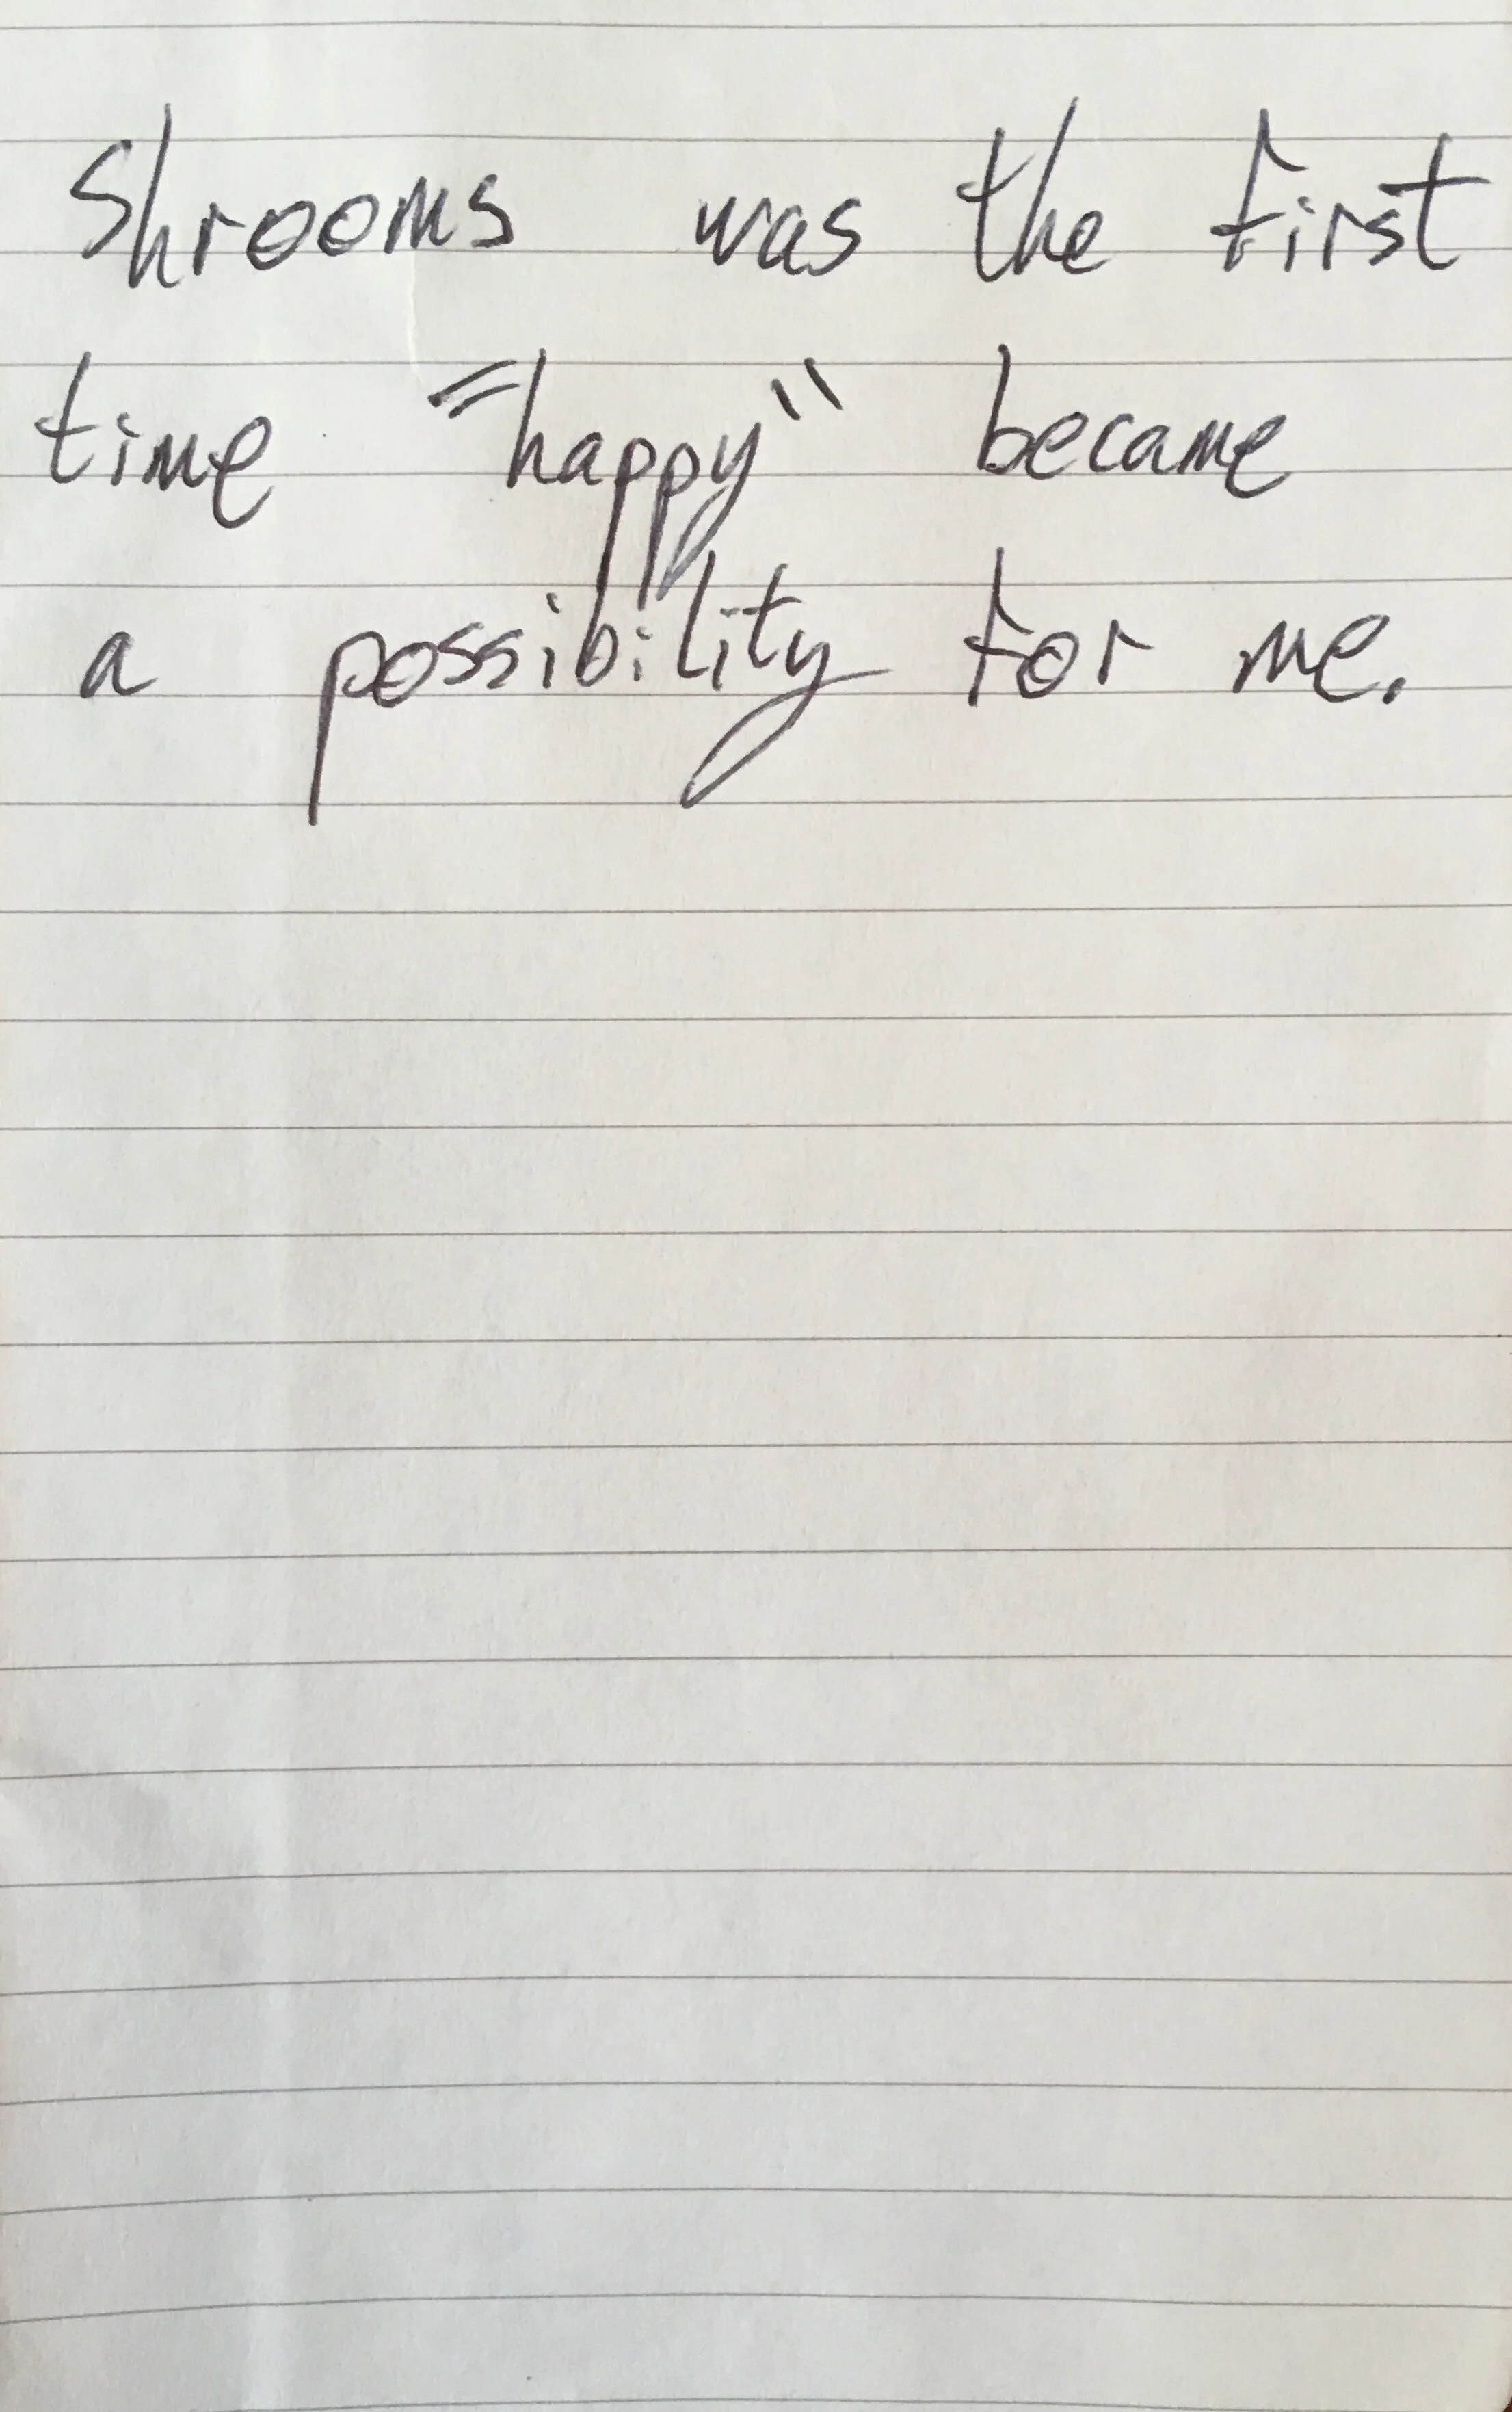 Shrooms was the first
time "happy" became
a possibility for me.